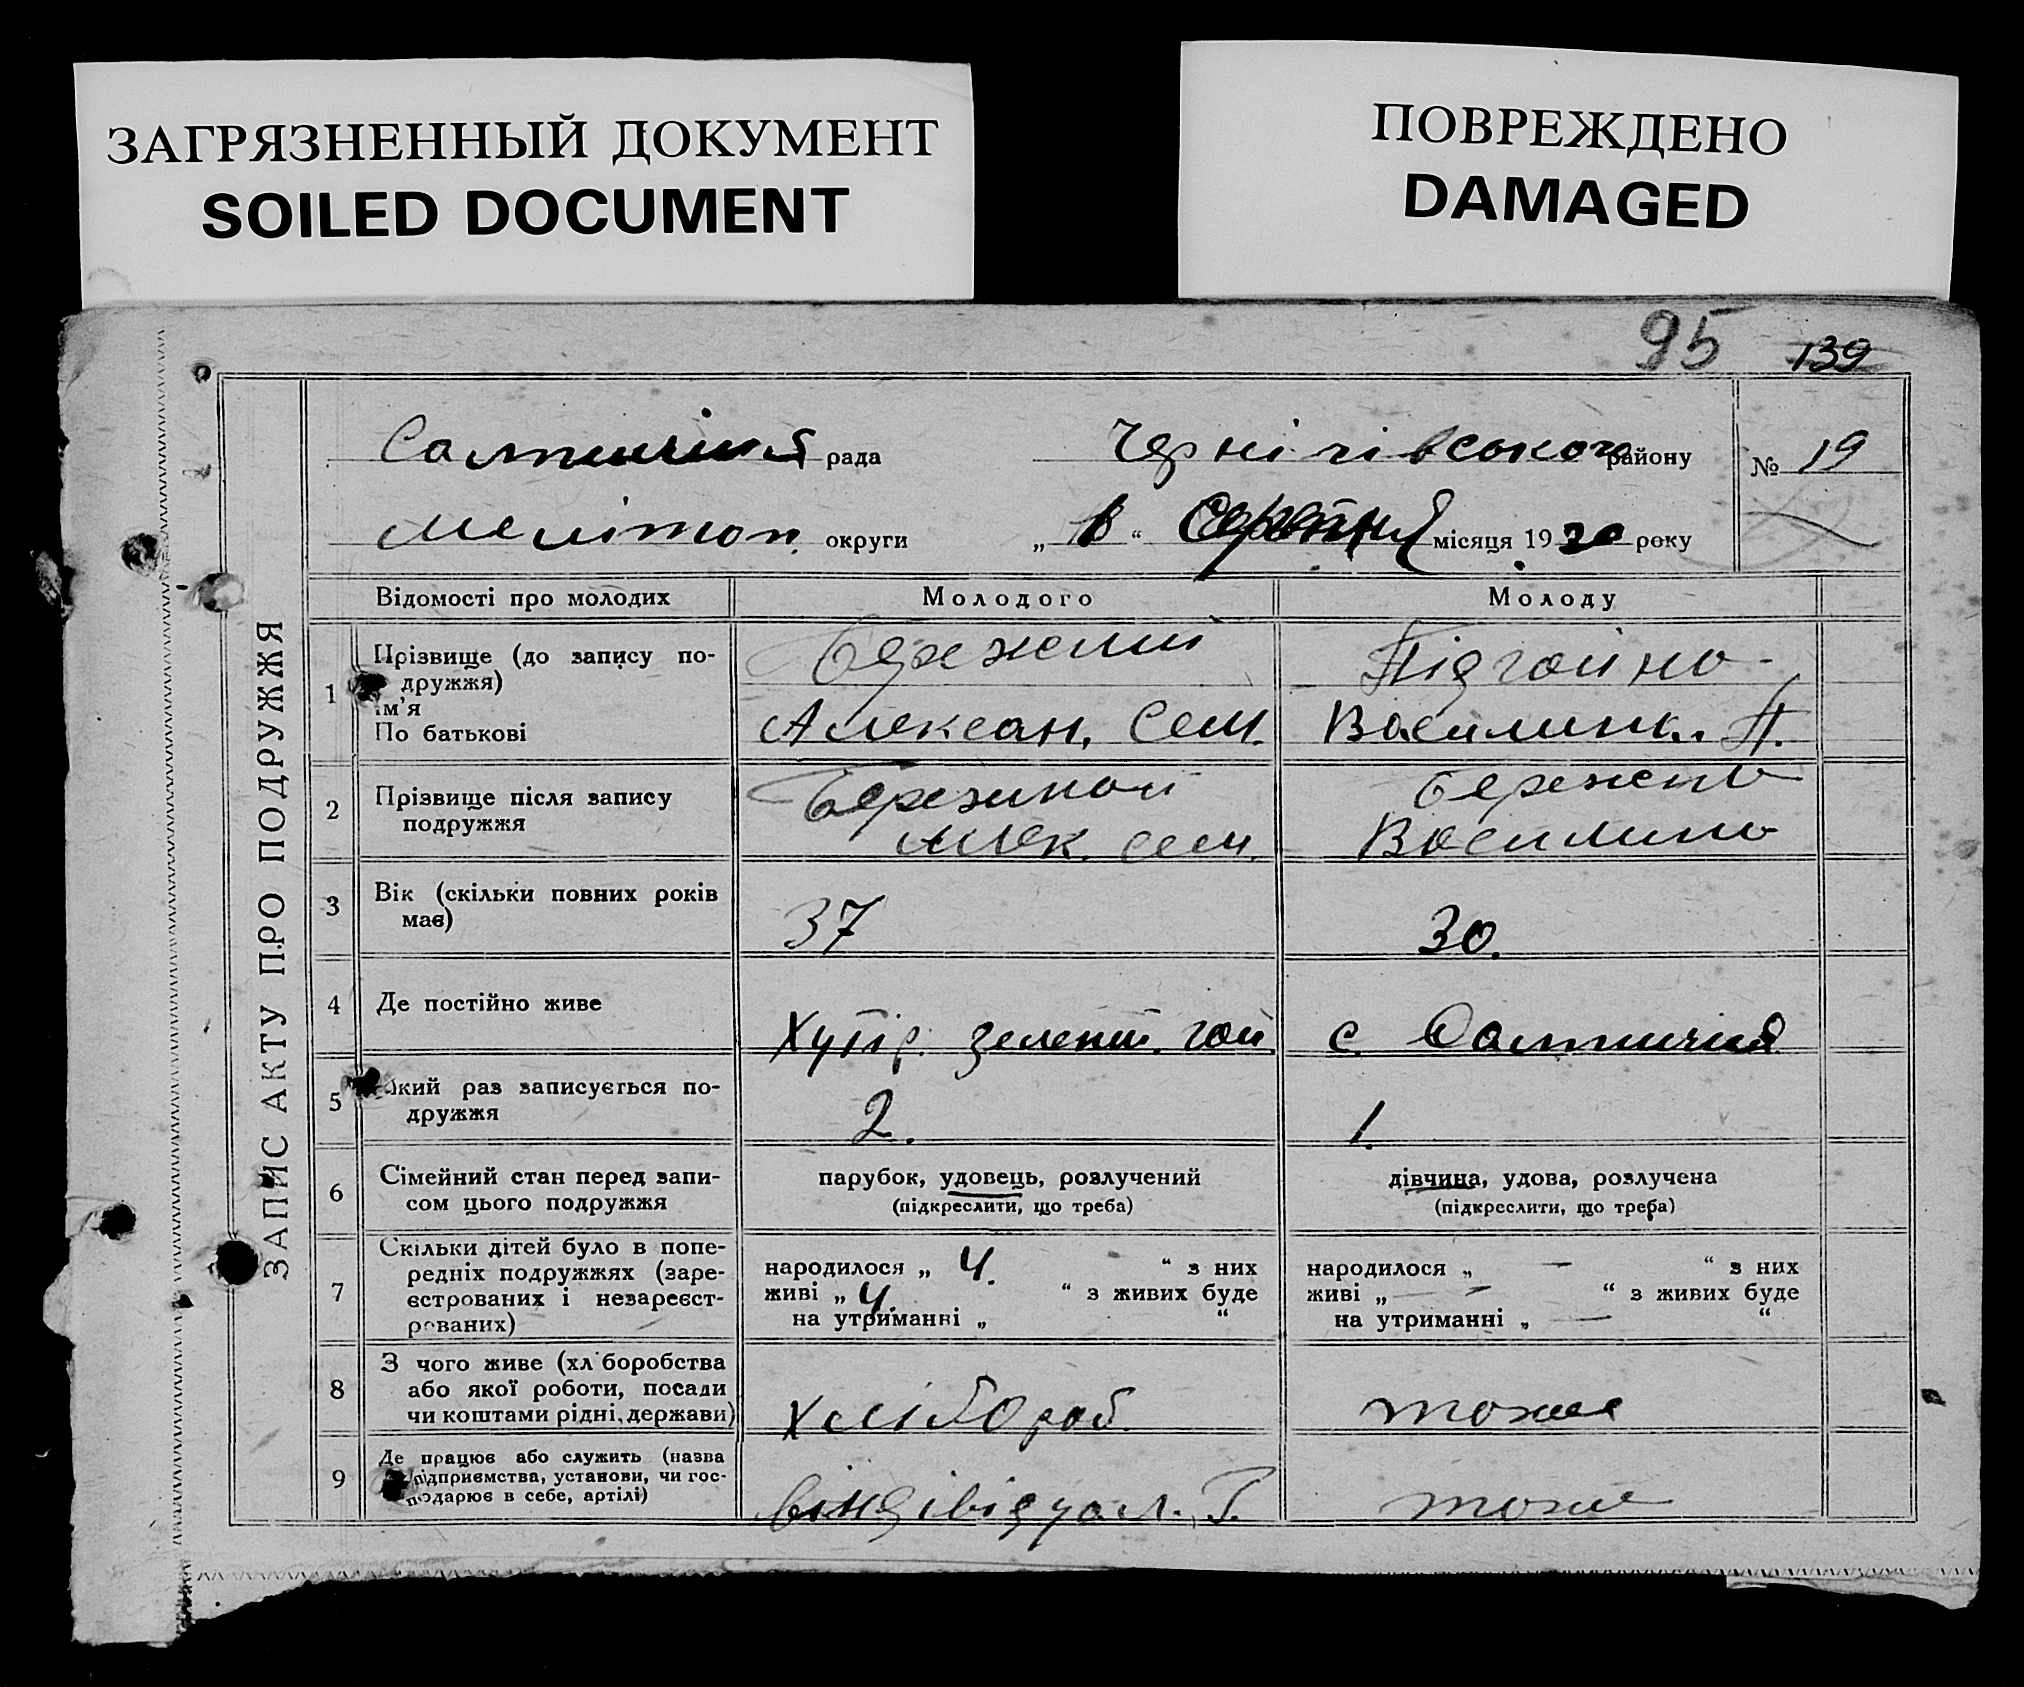 ЗАГРЯЗНЕННЫЙ ДОКУМЕНТ
SOILED DOCUMENT
ПОВРЕЖДЕНО
DAMAGED
95 139
рада Чернігівського району № 19
Мелітоп. округи „ “ місяця 1930 року
ЗАПИС АКТУ ПРО ПОДРУЖЖЯ
Відомості про молодих Молодого Молоду
1 Прізвище (до запису по-
дружжя)
ім’я
По батькові
Підгойно
Алексан. Сем. П.
2 Прізвище після запису
подружжя
Алек. Сем.
Василина
3 Вік (скільки повних років
має)
37 30.
4 Де постійно живе Хутір. Зелений. гай. с. Салтичия
5 Який раз записується по-
дружжя
2. 1.
6 Сімейний стан перед запи-
сом цього подружжя
парубок, удовець, розлучений
(підкреслити, що треба)
дівчина, удова, розлучена
(підкреслити, що треба)
7 Скільки дітей було в попе-
редніх подружжях (заре-
єстрованих і незареєст-
рованих)
народилося „ 4. “ з них
живі „ 4. “ з живих буде
на утриманні „ “
народилося „ — “ з них
живі „ — “ з живих буде
на утриманні „ — “
8 З чого живе (хліборобства
або якої роботи, посади
чи коштами рідні, держави)
Хлібороб. тоже
9 Де працює або служить (назва
підприємства, установи, чи гос-
подарює в себе, артілі)
індівідуал. Г. тоже